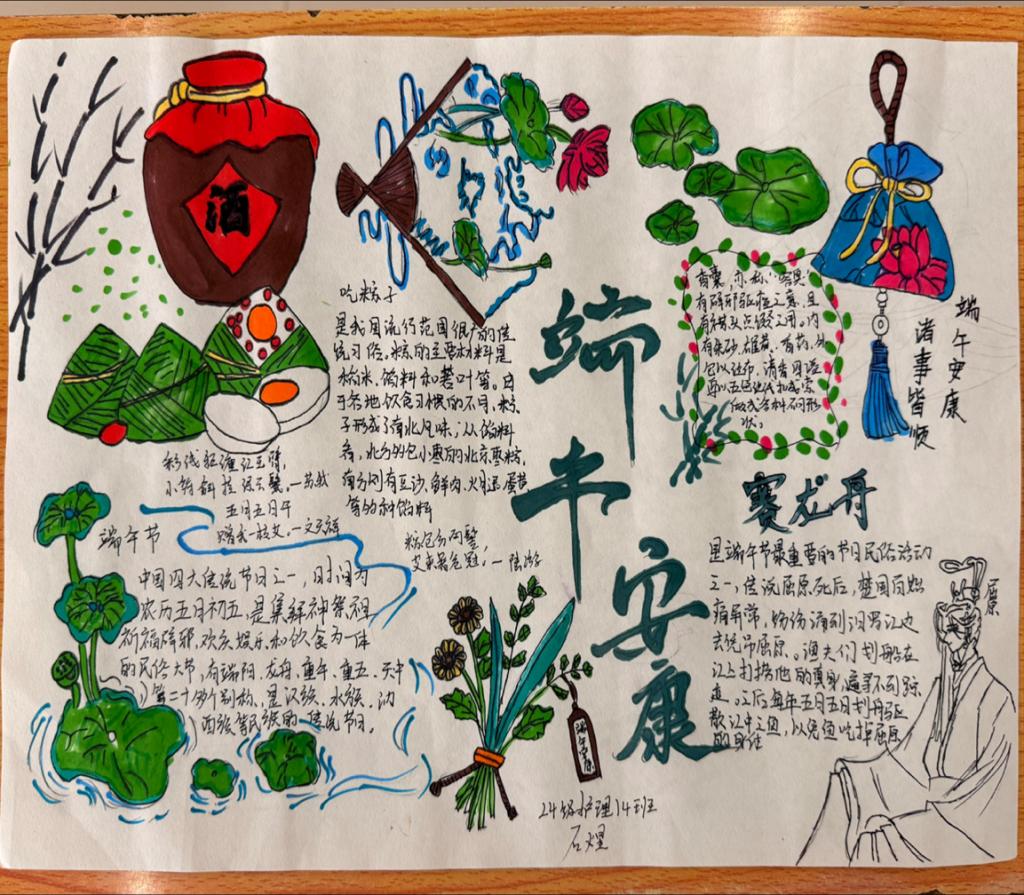 酒
吃粽子
是我国流行范围很广的传
统习俗。粽的主要材料是
稻米、馅料和箬叶等。由
于各地饮食习惯的不同,粽
子形成了南北风味;从馅料
看,北方多包小枣的北京枣粽,
南方则有豆沙,鲜肉,火腿,蛋黄
等多种馅料
彩线轻缠红玉臂,
小符斜挂绿云鬟。一苏轼
五月五日午
赠我一枝艾。一文天祥
粽包分两髻,
艾束著危冠。一陆游
端午节
中国四大传统节日之一,时间为
农历五月初五,是集拜神祭祖
祈福辟邪,欢庆娱乐和饮食为一体
的民俗大节,有端阳,龙舟,重午,重五,天中
等二十多个别称,是汉族、水族、
西族等民族的传统节日。
端午安康
香囊,亦称"容臭"
有辟邪驱瘟之意,且
有襟头点缀之用。内
有朱砂、雄黄、香药,外
包以丝布,清香四溢
再以五色丝线扣成索
做成各种不同形
状。
端午安康
诸事皆顺
赛龙舟
是端午节最重要的节日民俗活动
之一,传说屈原死后,楚国百姓
痛异常,纷纷涌到汨罗江边
去凭吊屈原。渔夫们划船在
江上打捞他的真身,遍寻不到踪
迹。之后每年五月五日划舟驱
散江中之鱼,以免鱼吃掉屈原
的身体
屈原
端午安康
24级护理14班
石煜